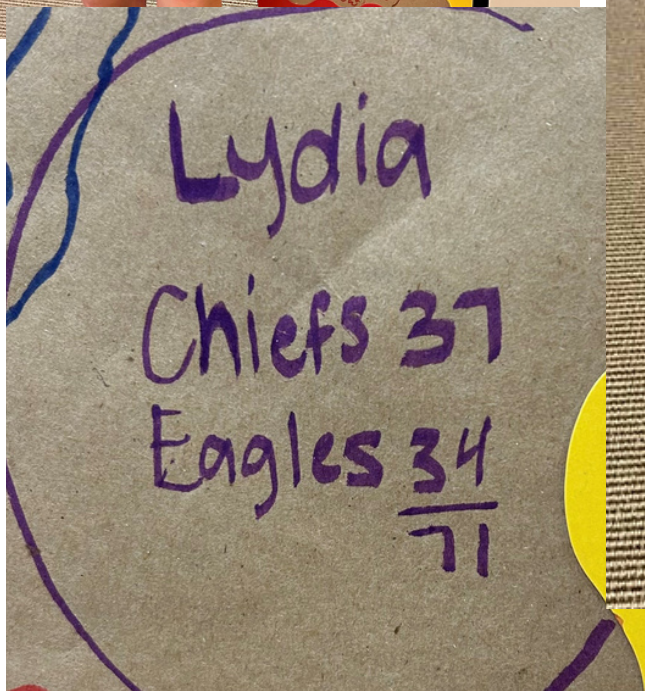 Lydia
Chiefs 37
Eagles 34
71